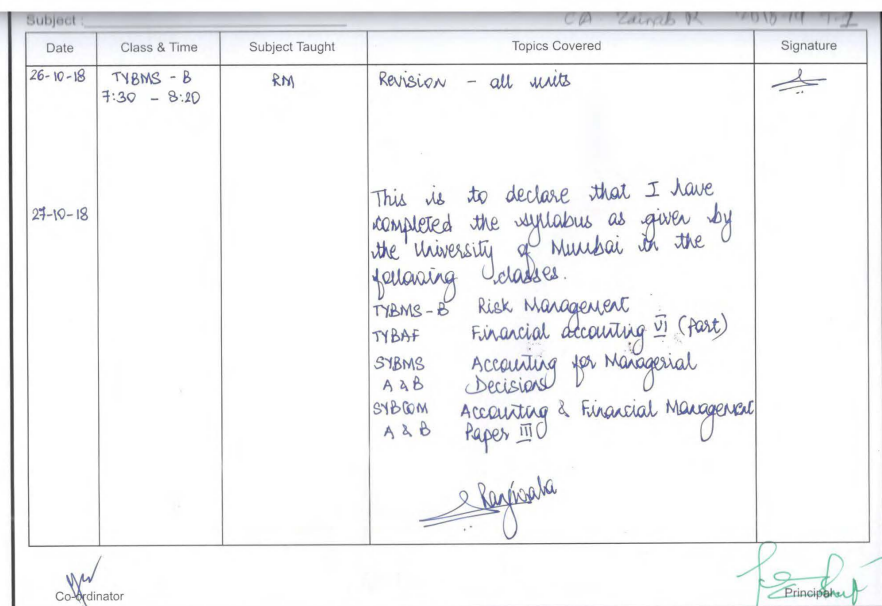 Subject :
CA. Zainab R 2018-19 T-1
Date Class & Time Subject Taught Topics Covered Signature
26-10-18 TYBMS - B RM Revision - all units
7:30 - 8:20
27-10-18
This is to declare that I have
completed the syllabus as given by
the University of Mumbai in the
following classes.
TYBMS-B Risk Management
TYBAF Financial accounting VI (Part)
SYBMS Accounting for Managerial
A & B Decisions
SYBCOM Accounting & Financial Management
A & B Paper III
Co-ordinator
Principal